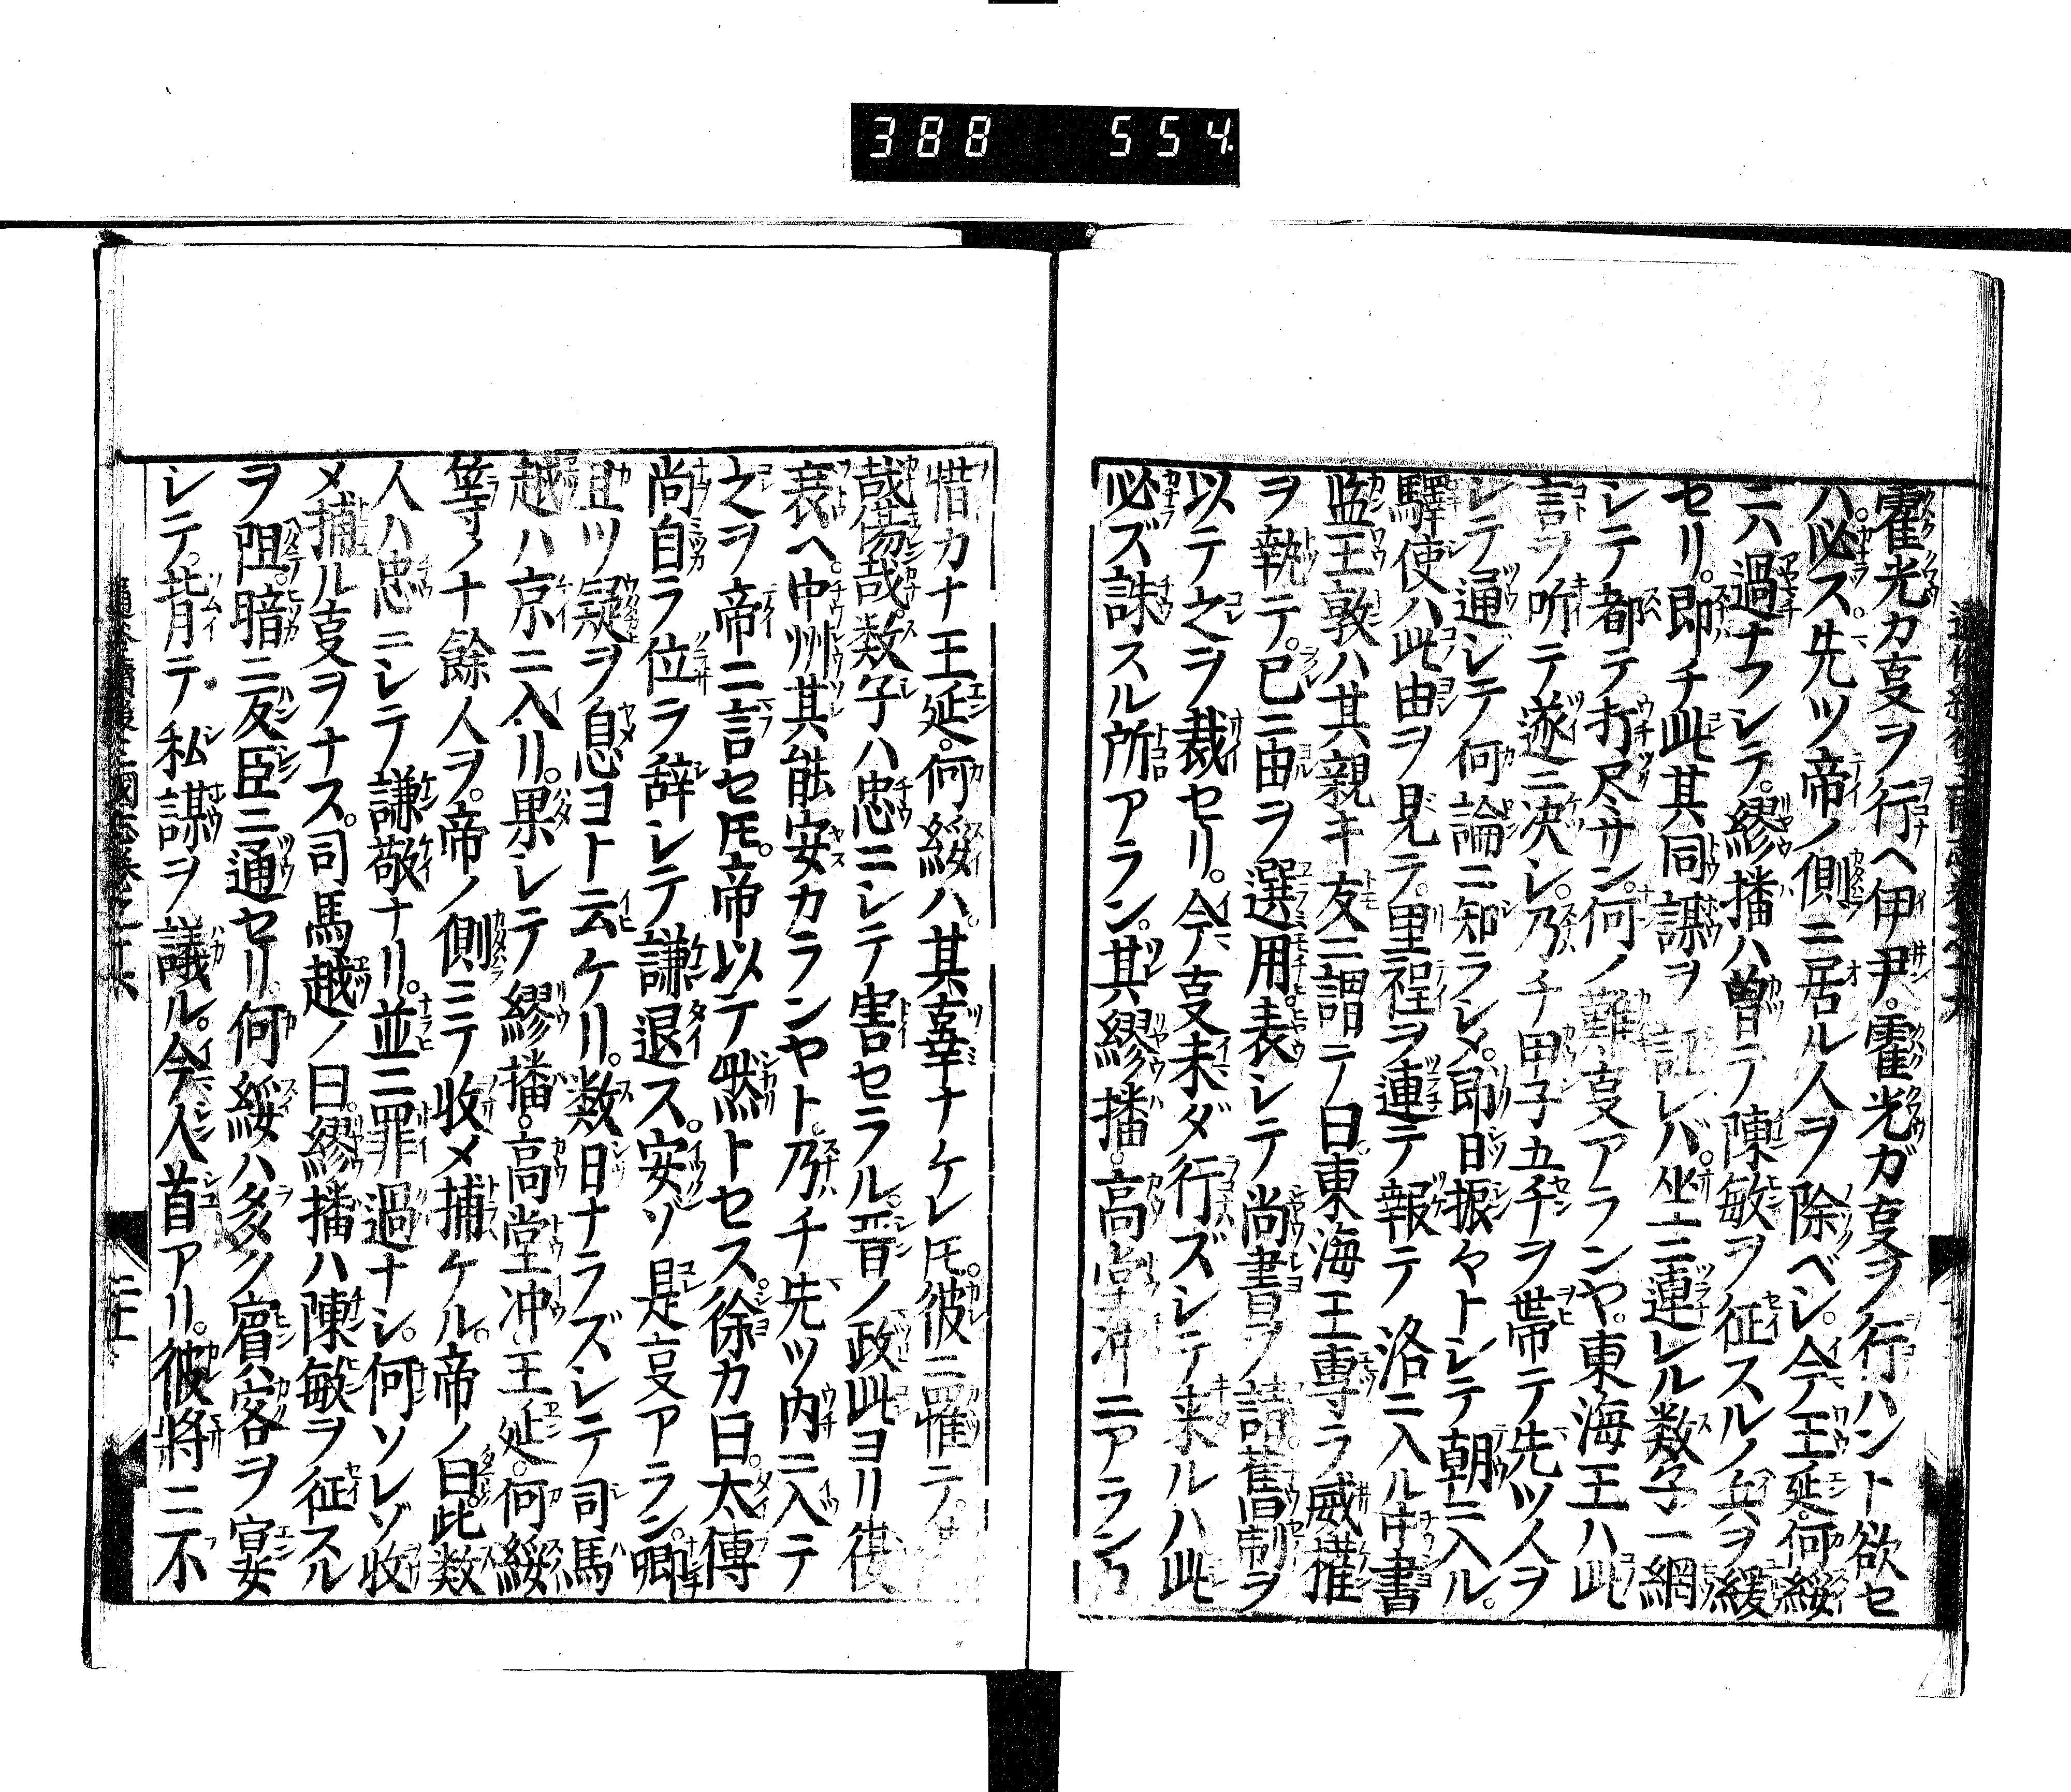 388 554.
霍光カ叓ヲ行ヘ伊尹。霍光ガ叓ヲ行ハント欲セ
ハ。必ス。先ツ帝ノ側ニ居ル人ヲ除ベシ。今王延。何綏
ニハ過ナフシテ。繆播ハ曽テ陳敏ヲ征スルノ兵ヲ緩
セリ。即チ此其同謀ヲ証レバ。坐ニ連レル数子一網
シテ都テ打尽サン。何ノ難叓アランヤ。東海王ハ此
言ヲ听テ遂ニ决シ。乃チ甲子五千ヲ帯テ先ツ人ヲ
シテ通シテ何論ニ知ラシメ。即日振々トシテ朝ニ入ル。
驛使ハ此由ヲ見ラ。里程ヲ連テ報テ洛ニ入ル中書
監王敦ハ其親キ友ニ謂テ曰。東海王専ラ威權
ヲ執テ。已ニ由ヲ選用。表シテ尚書ヲ請。舊制ヲ
以テ之ヲ裁セリ。今叓未ダ行ズシテ来ルハ此
必ズ誅スル所アラン。其繆播。高堂冲ニアラン
惜カナ王延。何綏ハ。其辜ナケレ𪜈。彼ニ罹テ。
哉傷哉。数子ハ忠ニシテ害セラル。晋ノ政此ヨリ
衰ヘ。中州其能安カランヤト。乃チ先ツ内ニ入テ
之ヲ帝ニ言セ𪜈。帝以テ然トセス。徐カ曰。太傅
尚自ラ位ラ辞シテ謙退ス。安ゾ是叓アラン。卿
且ツ疑ヲ息ヨト云ケリ。数日ナラズシテ司馬
越ハ京ニ入リ。果シテ繆播。高堂冲。王延。何綏
等ノ十餘人ヲ。帝ノ側ニテ收メ捕ケル。帝ノ曰。此数
人ハ忠ニシテ謙敬ナリ。並ニ罪過ナシ。何ソレゾ收
メ捕ル叓ヲナス。司馬越ノ曰。繆播ハ陳敏ヲ征スル
ヲ阻。暗ニ反臣ニ通セリ。何綏ハ多ク賓客ヲ宴
シテ。背テ私謀ヲ議ル。今人首アリ。彼將ニ不